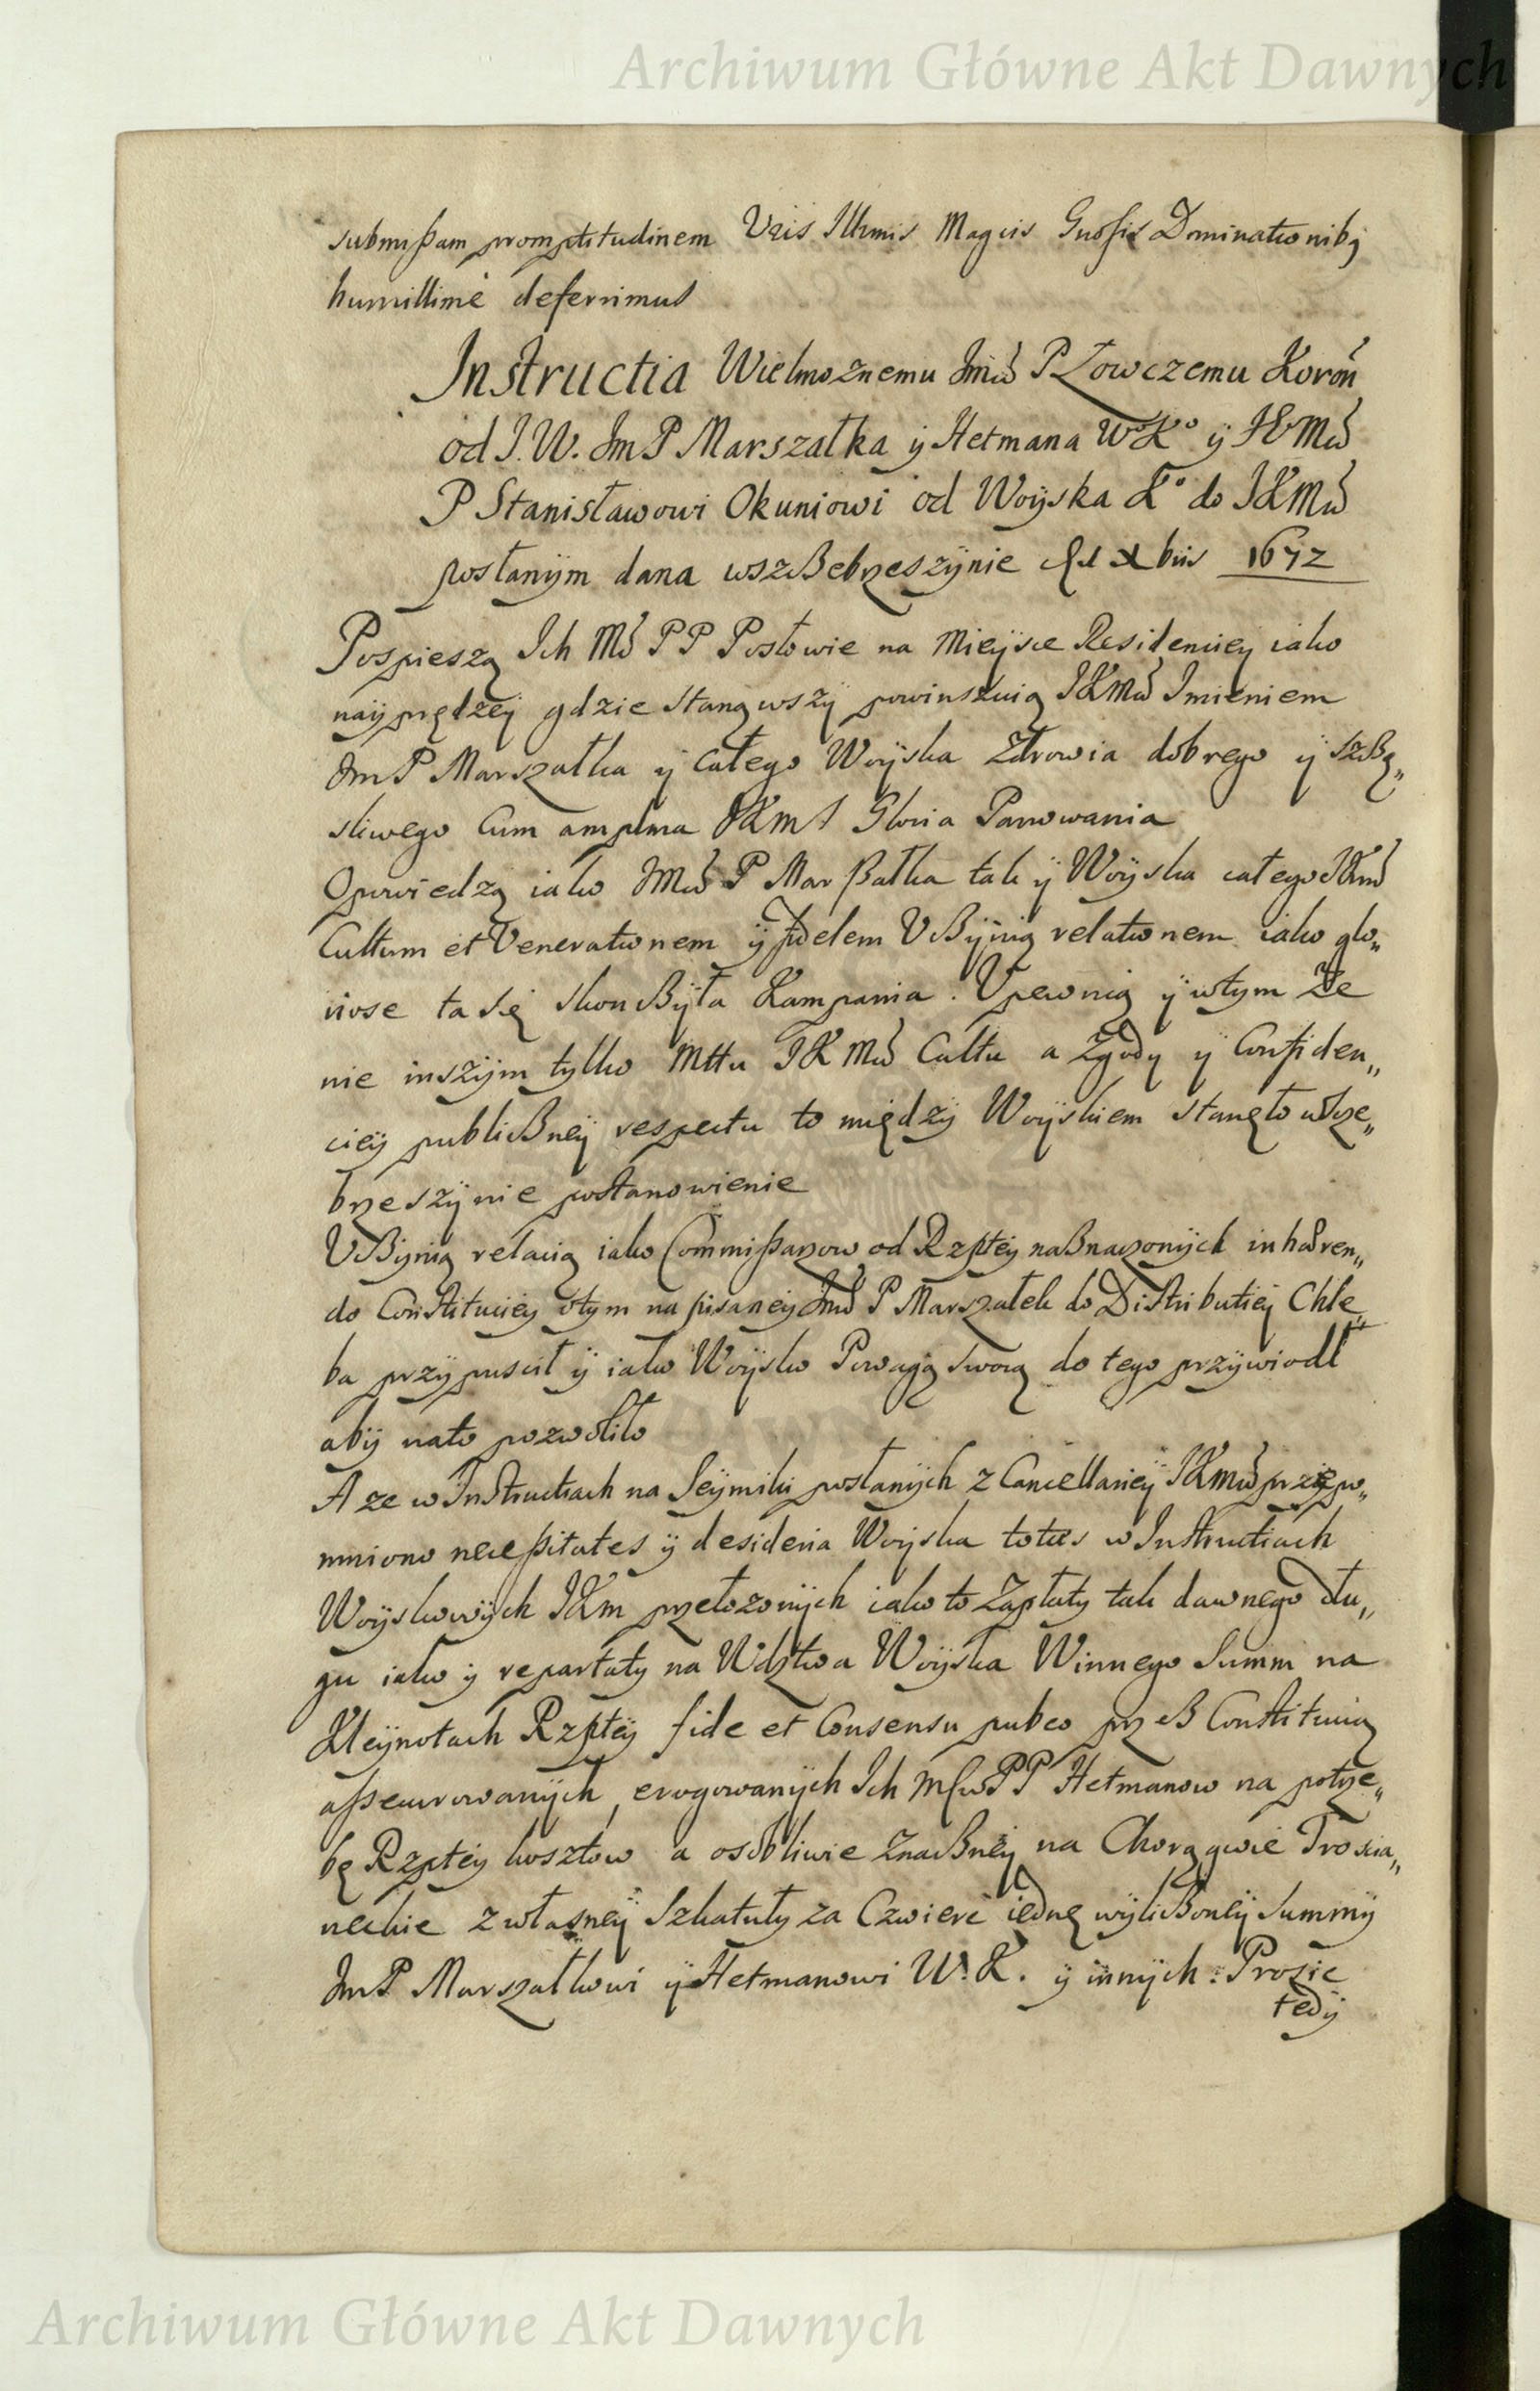 Archiwum Główne Akt Dawnych
submißam promptitudinem Vris Illmis Magcis Gnosis Dominationibꝫ
humillimè deferimus
Instructia Wielmoznemu Jmci P Łowczemu Koroń
od J. W. Jm P Marszałka ÿ Hetmana Wo Ko ÿ Mci
P Stanisławowi Okuniowi od Woÿska Ko do JKMci
posłanÿm dana wszczebrzeszÿnie Xbris 1672
Pospieszą Ich Mć P P Posłowie na Mieÿsce Residenciey iako
naÿprędzeÿ gdzie stanąwszÿ powinszuią JKMci Imieniem
Jm P Marszałka ÿ Całego Woÿska Zdrowia dobrego ÿ szczę„
sliwego Cum amplma JKM Gloria Panowania
Opowiedzą iako JMci P Marszałka tak ÿ Woÿska całego JKmci
Cultum et Venerationem ÿ fidelem Vczÿnią relationem iako glo„
riose ta się skonczÿła Kampania. Vpewnią ÿ wtym Ze
nie inszÿm tylko Mttu JKMci Cultu a Zgodÿ ÿ Confiden„
cieÿ publiczneÿ respectu to międzÿ Woÿskiem stanęło wszcze„
brzeszÿnie postanowienie
Vczÿnią relacią iako Commißarzow od Rzpteÿ naznaczonÿch inhæren„
do Constitucieÿ otym napisaneÿ Jmć P Marszałek do Distributieÿ Chle„
ba przÿpuscił ÿ iako Woÿsko Powagą swoią do tego przÿwiodł
abÿ nato pozwoliło
A ze w Instructiach na Seÿmiki posłanÿch z Cancellarieÿ JKMci przepo„
mniono neceßitates ÿ desideria Woÿska toties w Instructiach
Woÿskowÿch JKm przełozonÿch iako to Zapłatÿ tak dawnego dłu„
gu iako ÿ repartatÿ na Wdztwa Woÿska Winnego Summ na
Kleÿnotach Rzpteÿ fide et Consensu pubco przez Constitucią
aßecurowanÿch, erogowanÿch Ich Mciow PP Hetmanow na potrze„
bę Rzpteÿ kosztow a osobliwie Znaczneÿ na Chorągwie Troscia„
neckie z własneÿ Szkatułÿ za Czwierć iednę wÿliczoneÿ Summÿ
Jm P Marszałkowi ÿ Hetmanowi W. K. ÿ innÿch: Prosic
tedÿ
Archiwum Główne Akt Dawnych